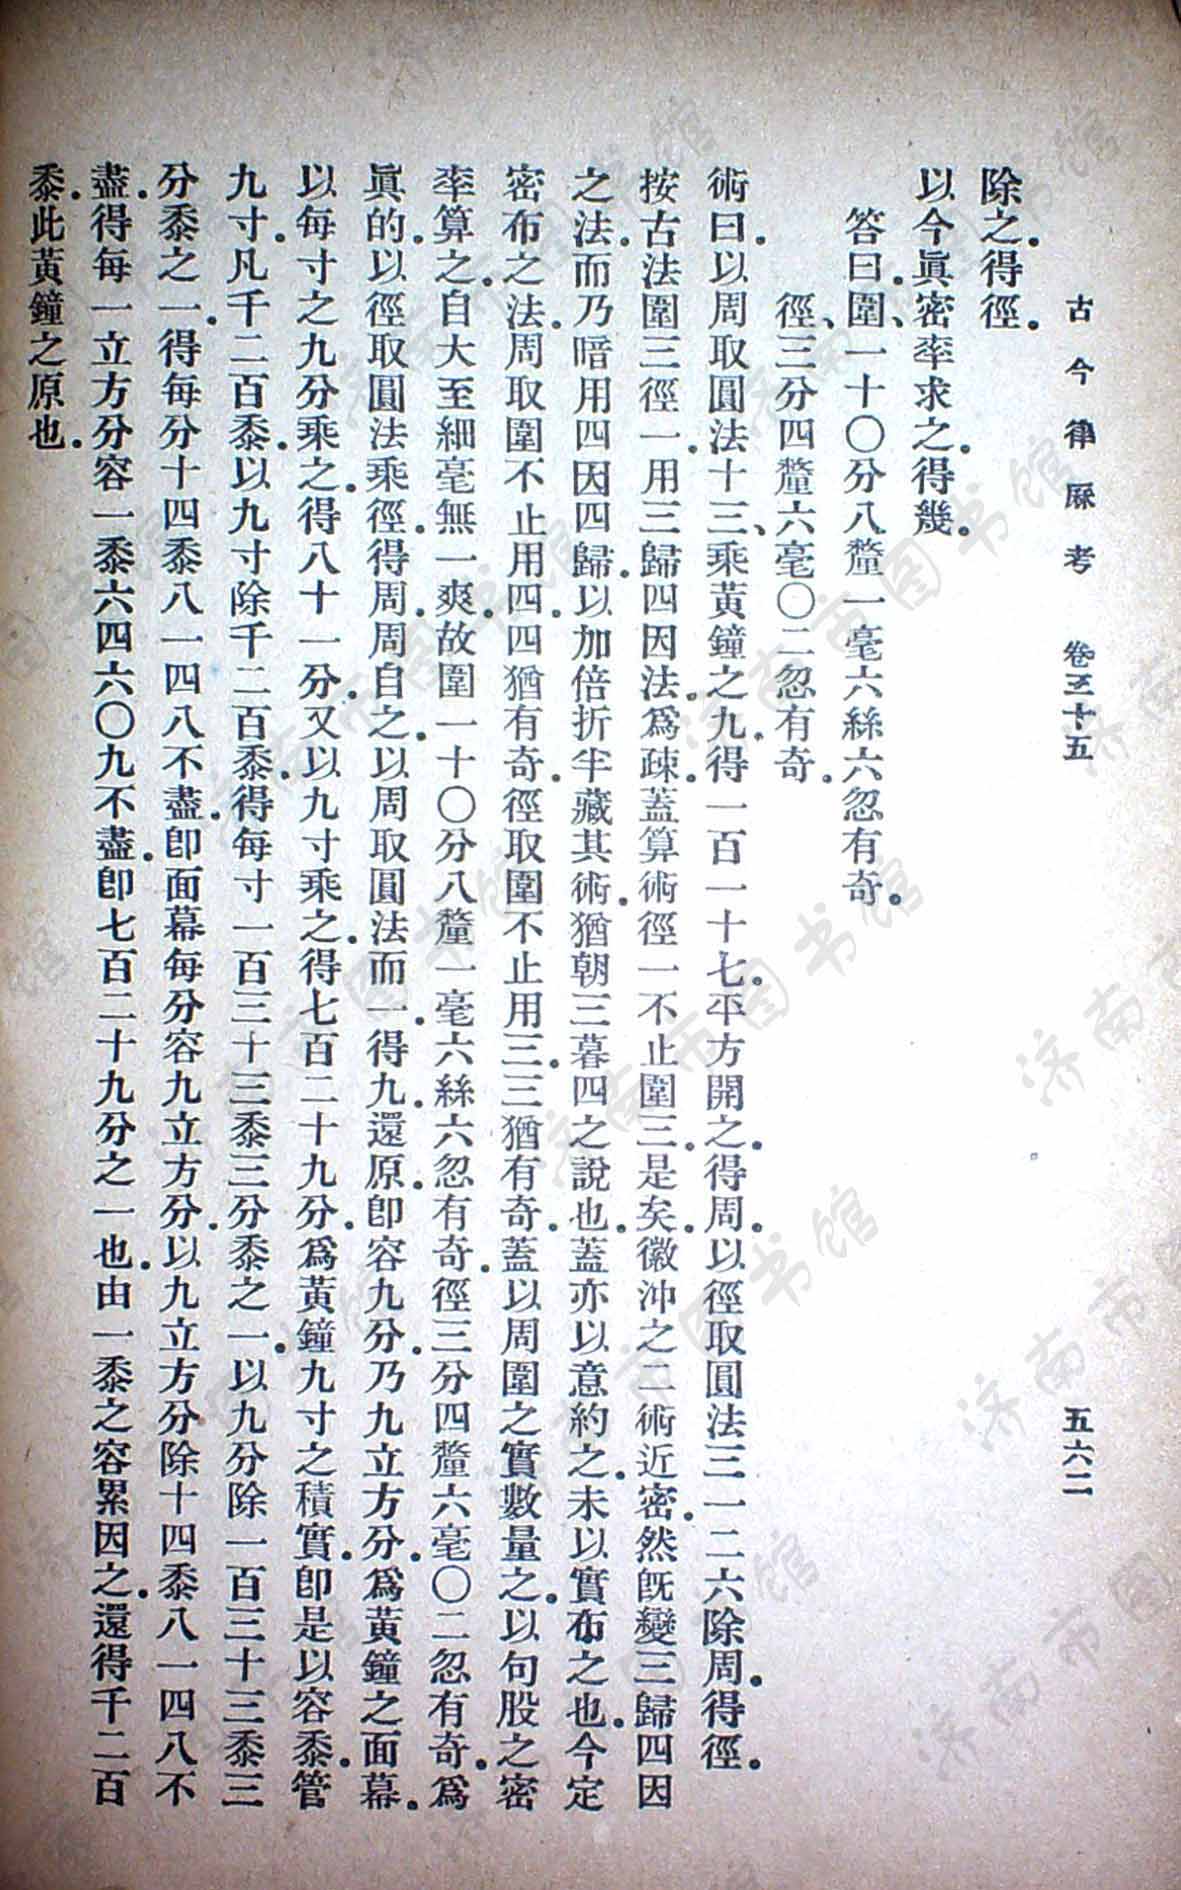 古今律厤考 卷三十五 五六二
除之。得徑。
以今眞密率求之。得幾。
答曰。圍、一十〇分八釐一毫六絲六忽有奇。
徑、三分四釐六毫〇二忽有奇。
術曰。以周取圓法十三、乘黃鐘之九。得一百一十七。平方開之。得周。以徑取圓法三一二六除周。得徑。
按古法圍三徑一。用三歸四因法。爲疎。蓋算術徑一不止圍三。是矣。徽沖之二術近密。然旣變三歸四因
之法。而乃暗用四因四歸。以加倍折半藏其術。猶朝三暮四之說也。蓋亦以意約之。未以實布之也。今定
密布之法。周取圍不止用四。四猶有奇。徑取圍不止用三。三猶有奇。蓋以周圍之實數量之。以句股之密
率算之。自大至細毫無一爽。故圍一十〇分八釐一毫六絲六忽有奇。徑三分四釐六毫〇二忽有奇。爲
眞的。以徑取圓法乘徑。得周。周自之。以周取圓法而一。得九。還原。卽容九分。乃九立方分。爲黃鐘之面冪。
以每寸之九分乘之。得八十一分。又以九寸乘之。得七百二十九分。爲黃鐘九寸之積實。卽是以容黍。管
九寸。凡千二百黍。以九寸除千二百黍。得每寸一百三十三黍三分黍之一。以九分除一百三十三黍三
分黍之一。得每分十四黍八一四八不盡。卽面冪每分容九立方分。以九立方分除十四黍八一四八不
盡。得每一立方分容一黍六四六〇九不盡。卽七百二十九分之一也。由一黍之容累因之。還得千二百
黍。此黃鐘之原也。